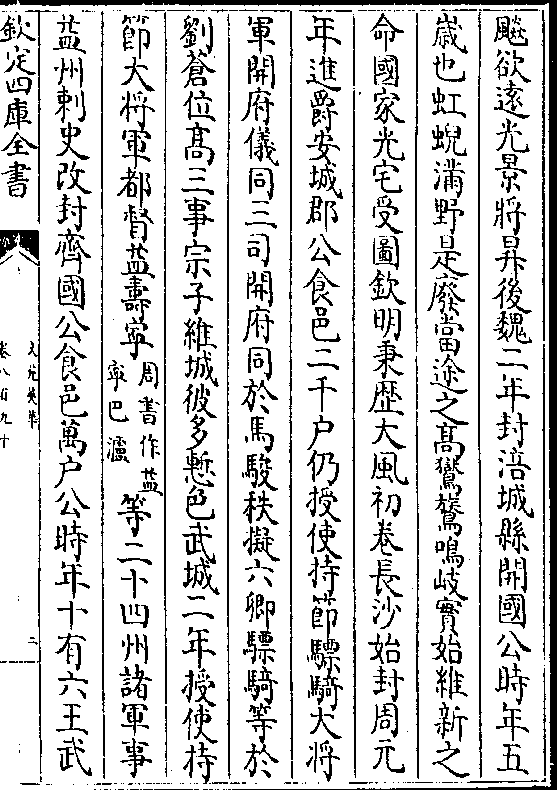 飈欲遠光景將昇後魏二年封涪城縣開國公時年五
歲也虹蜺滿野是廢當途之高鸑鷟鳴岐實始維新之
命國家光宅受圖欽明秉歴大風初卷長沙始封周元
年進爵安城郡公食邑二千户仍授使持節驃騎大將
軍開府儀同三司開府同於馬駿秩擬六卿驃騎等於
劉蒼位髙三事宗子維城彼多慙色武城二年授使持
節大將軍都督益壽寧周書作益寧巴瀘等二十四州諸軍事
益州刺史改封齊國公食邑萬户公時年十有六王武
欽定四庫全書
文苑英華
卷八百九十
二